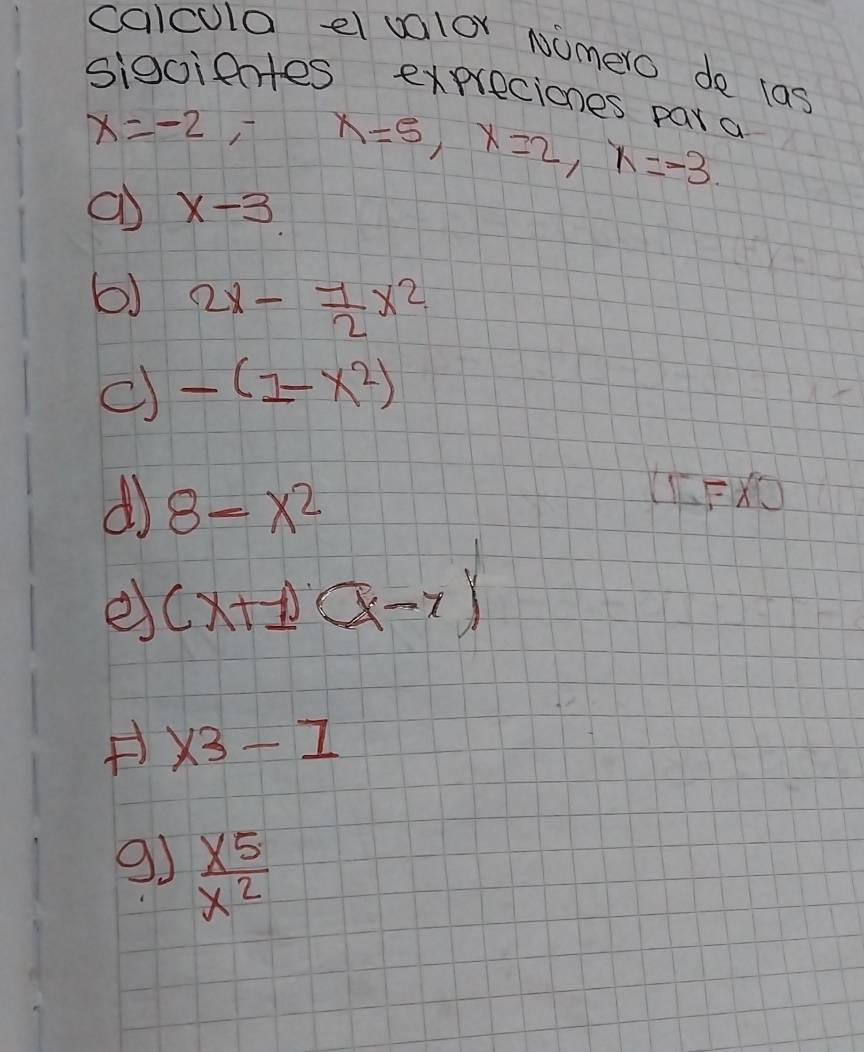 calcula el valor Número de las
sigoientes expreciones para
x=-2,- x=5, x=2, x=-3.
a) x-3.
b) 2x - 1/2 x²
c) -(1-x²)
d) 8-x²
e) (x+1)(x-1)
F) x3-1
g) x5/x²